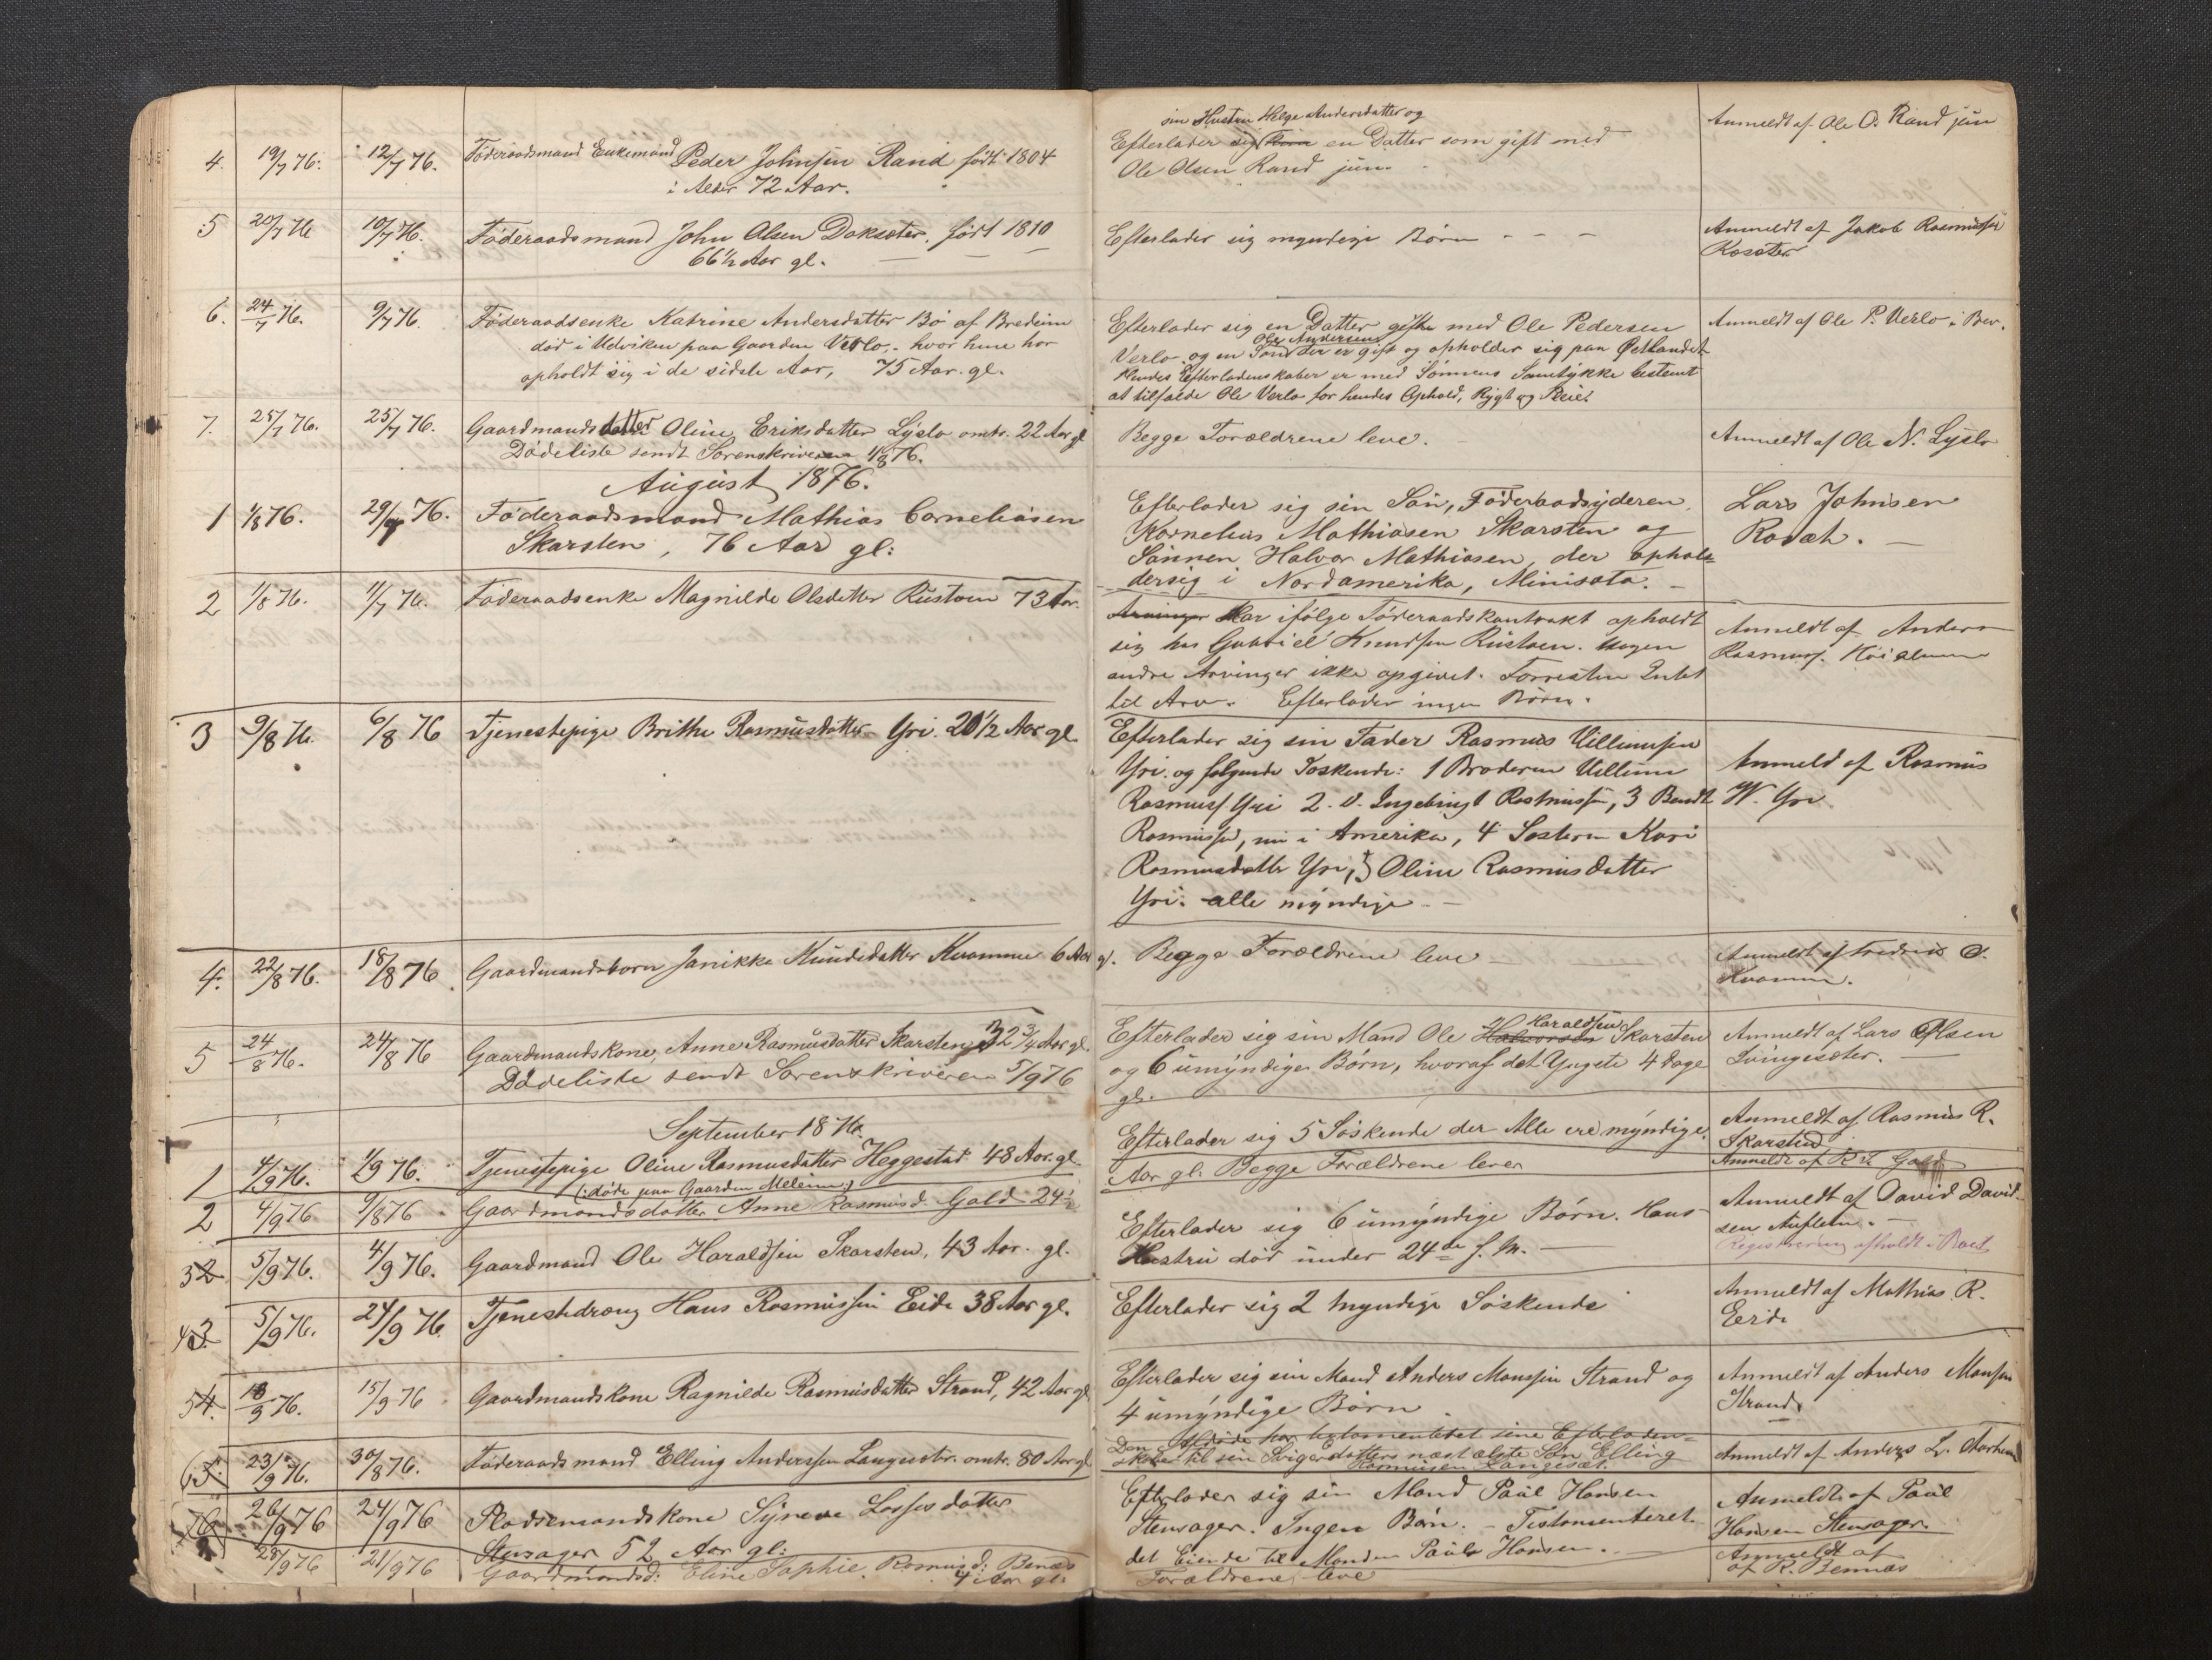 4. 19/7 76. 12/7 76. Föderaadsmand Enkemand Peder Johnsen Rand født 1804
i Alder 72 Aar.
sin Hustru Helge Andersdatter og
Efterlader sig en Datter som gift med
Ole Olsen Rand jun.
Anmeldt af Ole O. Rand jun
5 20/7 76 10/7 76. Föderaadsmand John Olsen Doksæter. født 1810
66 1/2 Aar gl.
Efterlader sig myndige Börn - - -
Anmeldt af Jakob Rasmussen
Rosæter
6. 24/7 76. 9/7 76. Föderaadsenke Katrine Andersdatter Bö af Bredeim
död i Udviken paa Gaarden Verlo, hvor hun har
opholdt sig i de sidste Aar, 75 Aar. gl.
Efterlader sig en Datter gift med Ole Pedersen
Ole Andersen
Verlo og en Sön der er gift og opholder sig paa Østlandet
Hendes Efterladenskaber er med Sönnens Samtykke bestemt
at tilfalde Ole Verlo for hendes Ophold, Rygt og Pleie.
Anmeldt af Ole P. Verlo i Brev.
7. 25/7 76. 25/7 76. Gaardmandsdatter Oline Eriksdatter Lyslo omtr. 22 Aar gl
Dödeliste sendt Sorenskriveren 1/8 76.
Begge Forældrene leve.
Anmeldt af Ole N. Lyslo
August 1876.
1 1/8 76. 29/7 76. Föderaadsmand Mathias Corneliasen
Skarsten, 76 Aar gl:
Efterlader sig sin Sön, Föderaadsyderen
Kornelius Mathiasen Skarsten og
Sönnen Halvor Mathiasen der ophol=
dersig i Nordamerika, Minisota. -
Lars Johnsen
Rodæh. -
2 1/8 76. 11/7 76. Föderaadsenke Magnilde Olsdatter Rustoen 73 Aar.
Arvinger Har ifölge Föderaadskontrakt opholdt
sig hos Gabriel Knudsen Rustoen. Nogen
andre Arvinger ikke opgivet. Forresten Intet
til Arv. Efterlader ingen Börn.
Anmeldt af Anders
Rasmuss.
3 9/8 76. 6/8 76 Tjenestepige Brithe Rasmusdatter Yri. 20 1/2 Aar gl
Efterlader sig sin Fader Rasmus Villumsen
Yri. og følgende Söskende: 1 Broderen Villum
Rasmuss Yri 2. d. Ingebrigt Rasmussen, 3 Bendt
Rasmussen, nu i Amerika, 4 Søsteren Kari
Rasmusdatter Yri, 5 Oline Rasmusdatter
Yri. alle myndige. -
Anmeld af Rasmus
W. Yri
4. 22/8 76. 18/8 76 Gaardmandsbarn Janikke Knudsdatter Kvamme 6 Aar gl.
Begge Forældrene leve -
Anmeldt af Fredrik O.
Kvamme.
5 24/8 76. 24/8 76 Gaardmandskone, Anne Rasmusdatter Skarsten 32 3/4 Aar gl.
Dödeliste sendt Sorenskriveren 5/9 76
Haraldsen
Efterlader sig sin Mand Ole Halvorsen Skarsten
og 6 umyndige Börn, hvoraf det Yngste 4 Dage
gl.
Anmeldt af Lars Olsen
Tvingesæter. -
September 1876.
1 4/9 76. 1/9 76. Tjenestepige Oline Rasmusdatter Heggestad 48 Aar gl.
(: døde paa Gaarden Melem :)
Efterlader sig 5 Söskende der Alle ere myndige.
Anmeldt af Rasmus R.
Skarsten
2 4/9 76 9/8 76 Gaardmandsdatter Anne Rasmusd. Gald 24 1/2
Aar gl. Begge Forældrene lever
Anmeldt af R. Gald
3 2 5/9 76. 4/9 76. Gaardmand Ole Haraldsen Skarsten, 43 Aar. gl.
Efterlader sig 6 umyndige Börn. Hans
Hustru död under 24de f. M. -
Anmeldt af David David-
sen Auflem. -
Registrering afholdt i Boet
4 3. 5/9 76. 24/9 76. Tjenestedreng Hans Rasmussen Eide 38 Aar gl.
Efterlader sig 2 myndige Söskende
Anmeldt af Mathias R.
Eide
5 4. 18/9 76. 15/9 76 Gaardmandskone Ragnilde Rasmusdatter Strand, 42 Aar gl
Efterlader sig sin Mand Anders Monssen Strand og
4 umyndige Börn
Anmeldt af Anders Monssen
Strand
6 5. 23/9 76. 30/8 76. Föderaadsmand Elling Andersen Langesæter. omtr. 80 Aar gl
Den Afdøde har testamenteret sine Efterladen=
skaber til sin Svigerdatters næst ældste Sön Elling
Rasmusen Langesæt.
Anmeldt af Anders L. Aarhend
7 6 26/9 76 24/9 76 Pladsemandskone Synneve Losjesdatter
Stensager 52 Aar gl:
Efterlader sig sin Mand Paul Hansen
Stensager. Ingen Börn. - Testamenteret
det Eiende til Manden Paul Hansen. -
Anmeldt af Paul
Hansen Stensager.
28/9 76 21/9 76 Gaardmandsd: Eline Sophie Rasmusd: Bennæs
4 Aar gl:
Forældrene leve
Anmeldt af
af R. Bennæs